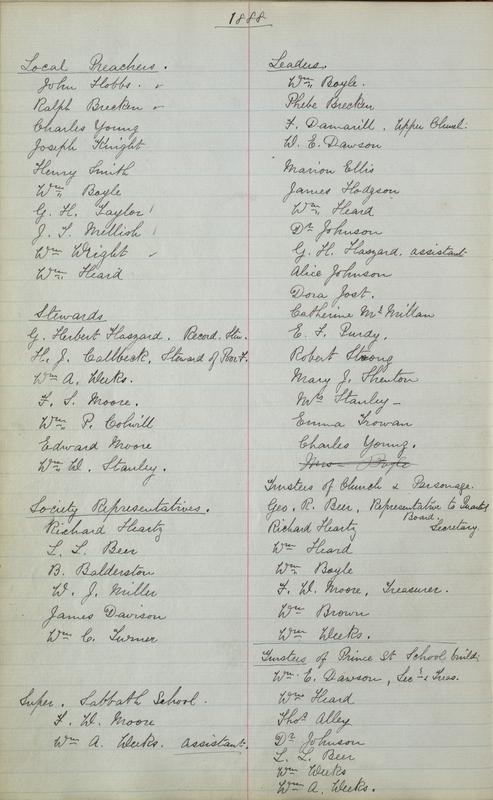 1888
Local Preachers.
John Hobbs.
Ralph Brecken
Charles Young
Joseph Knight
Henry Smith
Wm Boyle
G. H. Taylor
J. T. Mellish
Wm Wright
Wm Heard
Stewards
G. Herbert Haszard. Record. Stw.
H. J. Callbeck, Steward of Poor F.
Wm A. Weeks.
F. S. Moore.
Wm P. Colwill
Edward Moore
Wm W. Stanley.
Society Representatives.
Richard Heartz
L. L. Beer
B. Balderston
W. J. Miller
James Davison
Wm C. Turner
Super. Sabbath School.
F. W. Moore
Wm A. Weeks. assistant.
Leaders
Wm Boyle.
Phebe Brecken
F. Damarill. Upper Church.
W. E. Dawson
Marion Ellis
James Hodgson
Wm Heard
Dr Johnson
G. H. Haszard. assistant
Alice Johnson
Dora Jost.
Catherine McMillan
E. F. Purdy.
Robert Strong
Mary J. Shenton
Mrs Stanley -
Emma Trowan
Charles Young.
Mrs Boyle
Trustees of Church & Parsonage.
Geo. R. Beer, Representative to Quart
Board.
Richard Heartz Secretary
Wm Heard
Wm Boyle
F. W. Moore, Treasurer.
Wm Brown
Wm Weeks.
Trustees of Prince St School build:
Wm E. Dawson, Secy & Treas.
Wm Heard
Thos Alley
Dr Johnson
L. L. Beer
Wm Weeks
Wm A. Weeks.